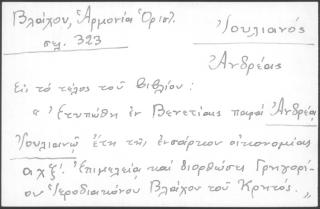 Βλάχου, Ἁρμονία Ὁριστ.
σελ. 323
Ἰουλιανός
Ἀνδρέας
Εἰς τὸ τέλος τοῦ βιβλίου:
« Ἐτυπώθη ἐν Βενετίαις παρὰ Ἀνδρέᾳ
Ἰουλιανῷ ἔτη τῆς ἐνσάρκου οἰκονομίας
αχξʹ. Ἐπιμελείᾳ καὶ διορθώσει Γρηγορί-
ου Ἱεροδιακόνου Βλάχου τοῦ Κρητός. »